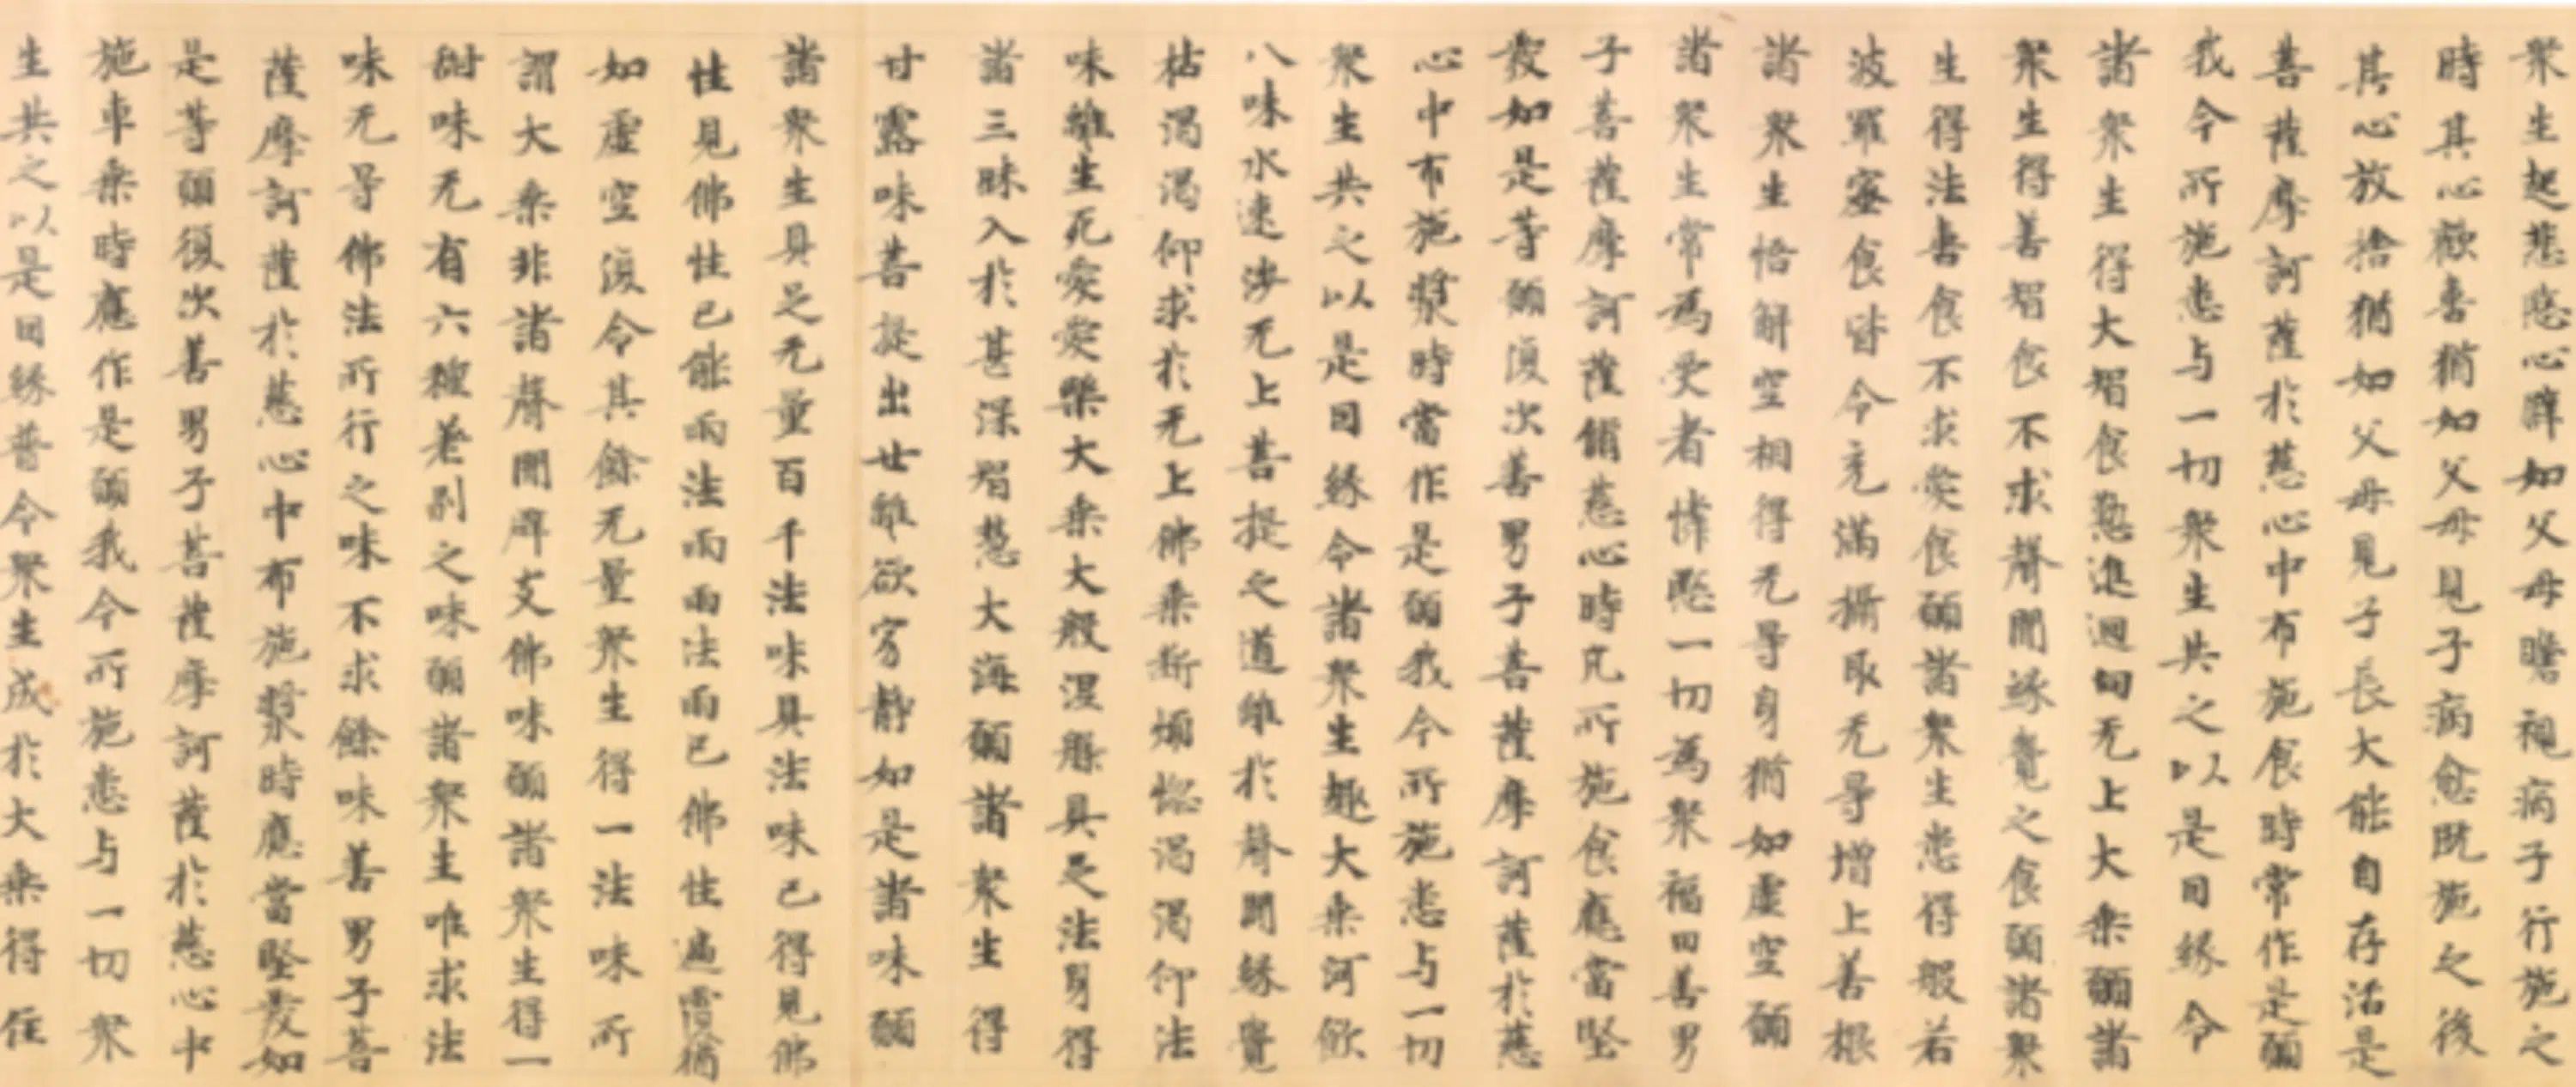 眾生起悲愍心譬如父母瞻視病子行施之
時其心歡喜猶如父母見子病愈既施之後
其心放捨猶如父母見子長大能自存活是
菩薩摩訶薩於慈心中布施食時常作是願
我今所施悉与一切眾生共之以是因緣令
諸眾生得大智食懃進迴向无上大乘願諸
眾生得善智食不求聲聞緣覺之食願諸眾
生得法喜食不求愛食願諸眾生悉得般若
波羅蜜食皆令充滿攝取无㝵增上善根
諸眾生悟解空相得无㝵身猶如虛空願
諸眾生常為受者憐愍一切為眾福田善男
子菩薩摩訶薩脩慈心時凡所施食應當堅
發如是等願復次善男子菩薩摩訶薩於慈
心中布施漿時當作是願我今所施悉与一切
眾生共之以是因緣令諸眾生趣大乘河飲
八味水速涉无上菩提之道離於聲聞緣覺
枯渴渴仰求於无上佛乘斷煩惱渴渴仰法
味離生死愛愛樂大乘大般涅槃具足法身得
諸三昧入於甚深智慧大海願諸眾生得
甘露味菩提出世離欲㝛靜如是諸味願
諸眾生具足无量百千法味具法味已得見佛
性見佛性已能雨法雨雨法雨已佛性遍覆猶
如虛空復令其餘无量眾生得一法味所
謂大乘非諸聲聞辟支佛味願諸眾生得一
甜味无有六種差別之味願諸眾生唯求法
味无㝵佛法所行之味不求餘味善男子菩
薩摩訶薩於慈心中布施漿時應當堅發如
是等願復次善男子菩薩摩訶薩於慈心中
施車乘時應作是願我今所施悉与一切眾
生共之以是因緣普令眾生成於大乘得住